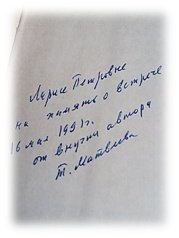 Ларисе Петровне
на память о встрече
16 мая 1991г.
от внучки автора
Т. Матвеева